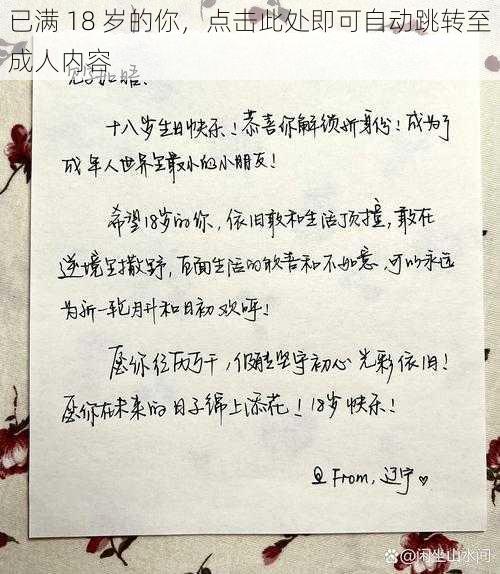 已满 18 岁的你，点击此处即可自动跳转至
成人内容
见字如晤、
十八岁生日快乐！恭喜你解锁新身份！成为了
成年人世界里最小的小朋友！
希望18岁的你，依旧敢和生活顶撞，敢在
逆境里撒野，直面生活的敌善和不如意，可以永远
为新一轮月升和日初欢呼！
愿你经历万千，仍能坚守初心 光彩依旧！
愿你在未来的日子锦上添花！18岁快乐！
From，辽宁♡
@闲坐山水间